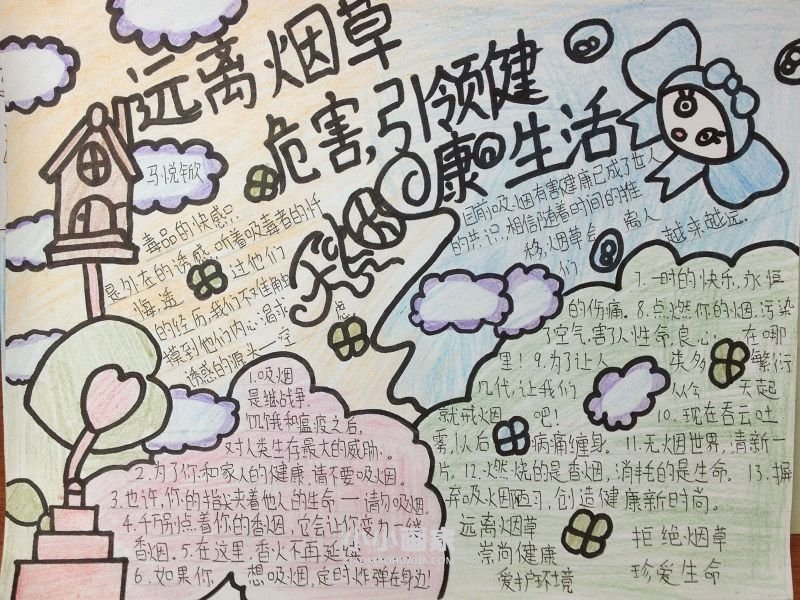 远离烟草
危害,引领健
康生活
马悦钦
毒品的快感只
是外在的诱感,听着吸毒者的忏
悔,透 过他们
的经历,我们不难触
摸到他们内心渴求
诱惑的源头一空
虑。
目前吸烟有害健康已成了世人
的共识,相信随着时间的推
移,烟草会 离人
们 越来越远。
1.吸烟
是继战争、
饥饿和瘟疫之后,
对人类生存最大的威胁、。
2.为了你和家人的健康,请不要吸烟。
3.也许,你的指尖夹着他人的生命—请勿吸烟。
4.千万别点着你的香烟,它会让你变为一缕
香烟。5.在这里,香火不再延续
6.如果你 想吸烟,定时炸弹在身边!
7.一时的快乐,永恒
的伤痛。8.点燃你的烟,污染
了空气,害了人性命,良心 在哪
里!9.为了让人 类多 繁衍
几代,让我们 从今 天起
就戒烟 吧! 10.现在吞云吐
雾,以后 病痛缠身。11.无烟世界,清新一
片。12.燃烧的是香烟,消耗的是生命。13.摒
弃吸烟陋习,创造健康新时尚。
远离烟草
崇尚健康
爱护环境
拒绝烟草
珍爱生命
小小画家